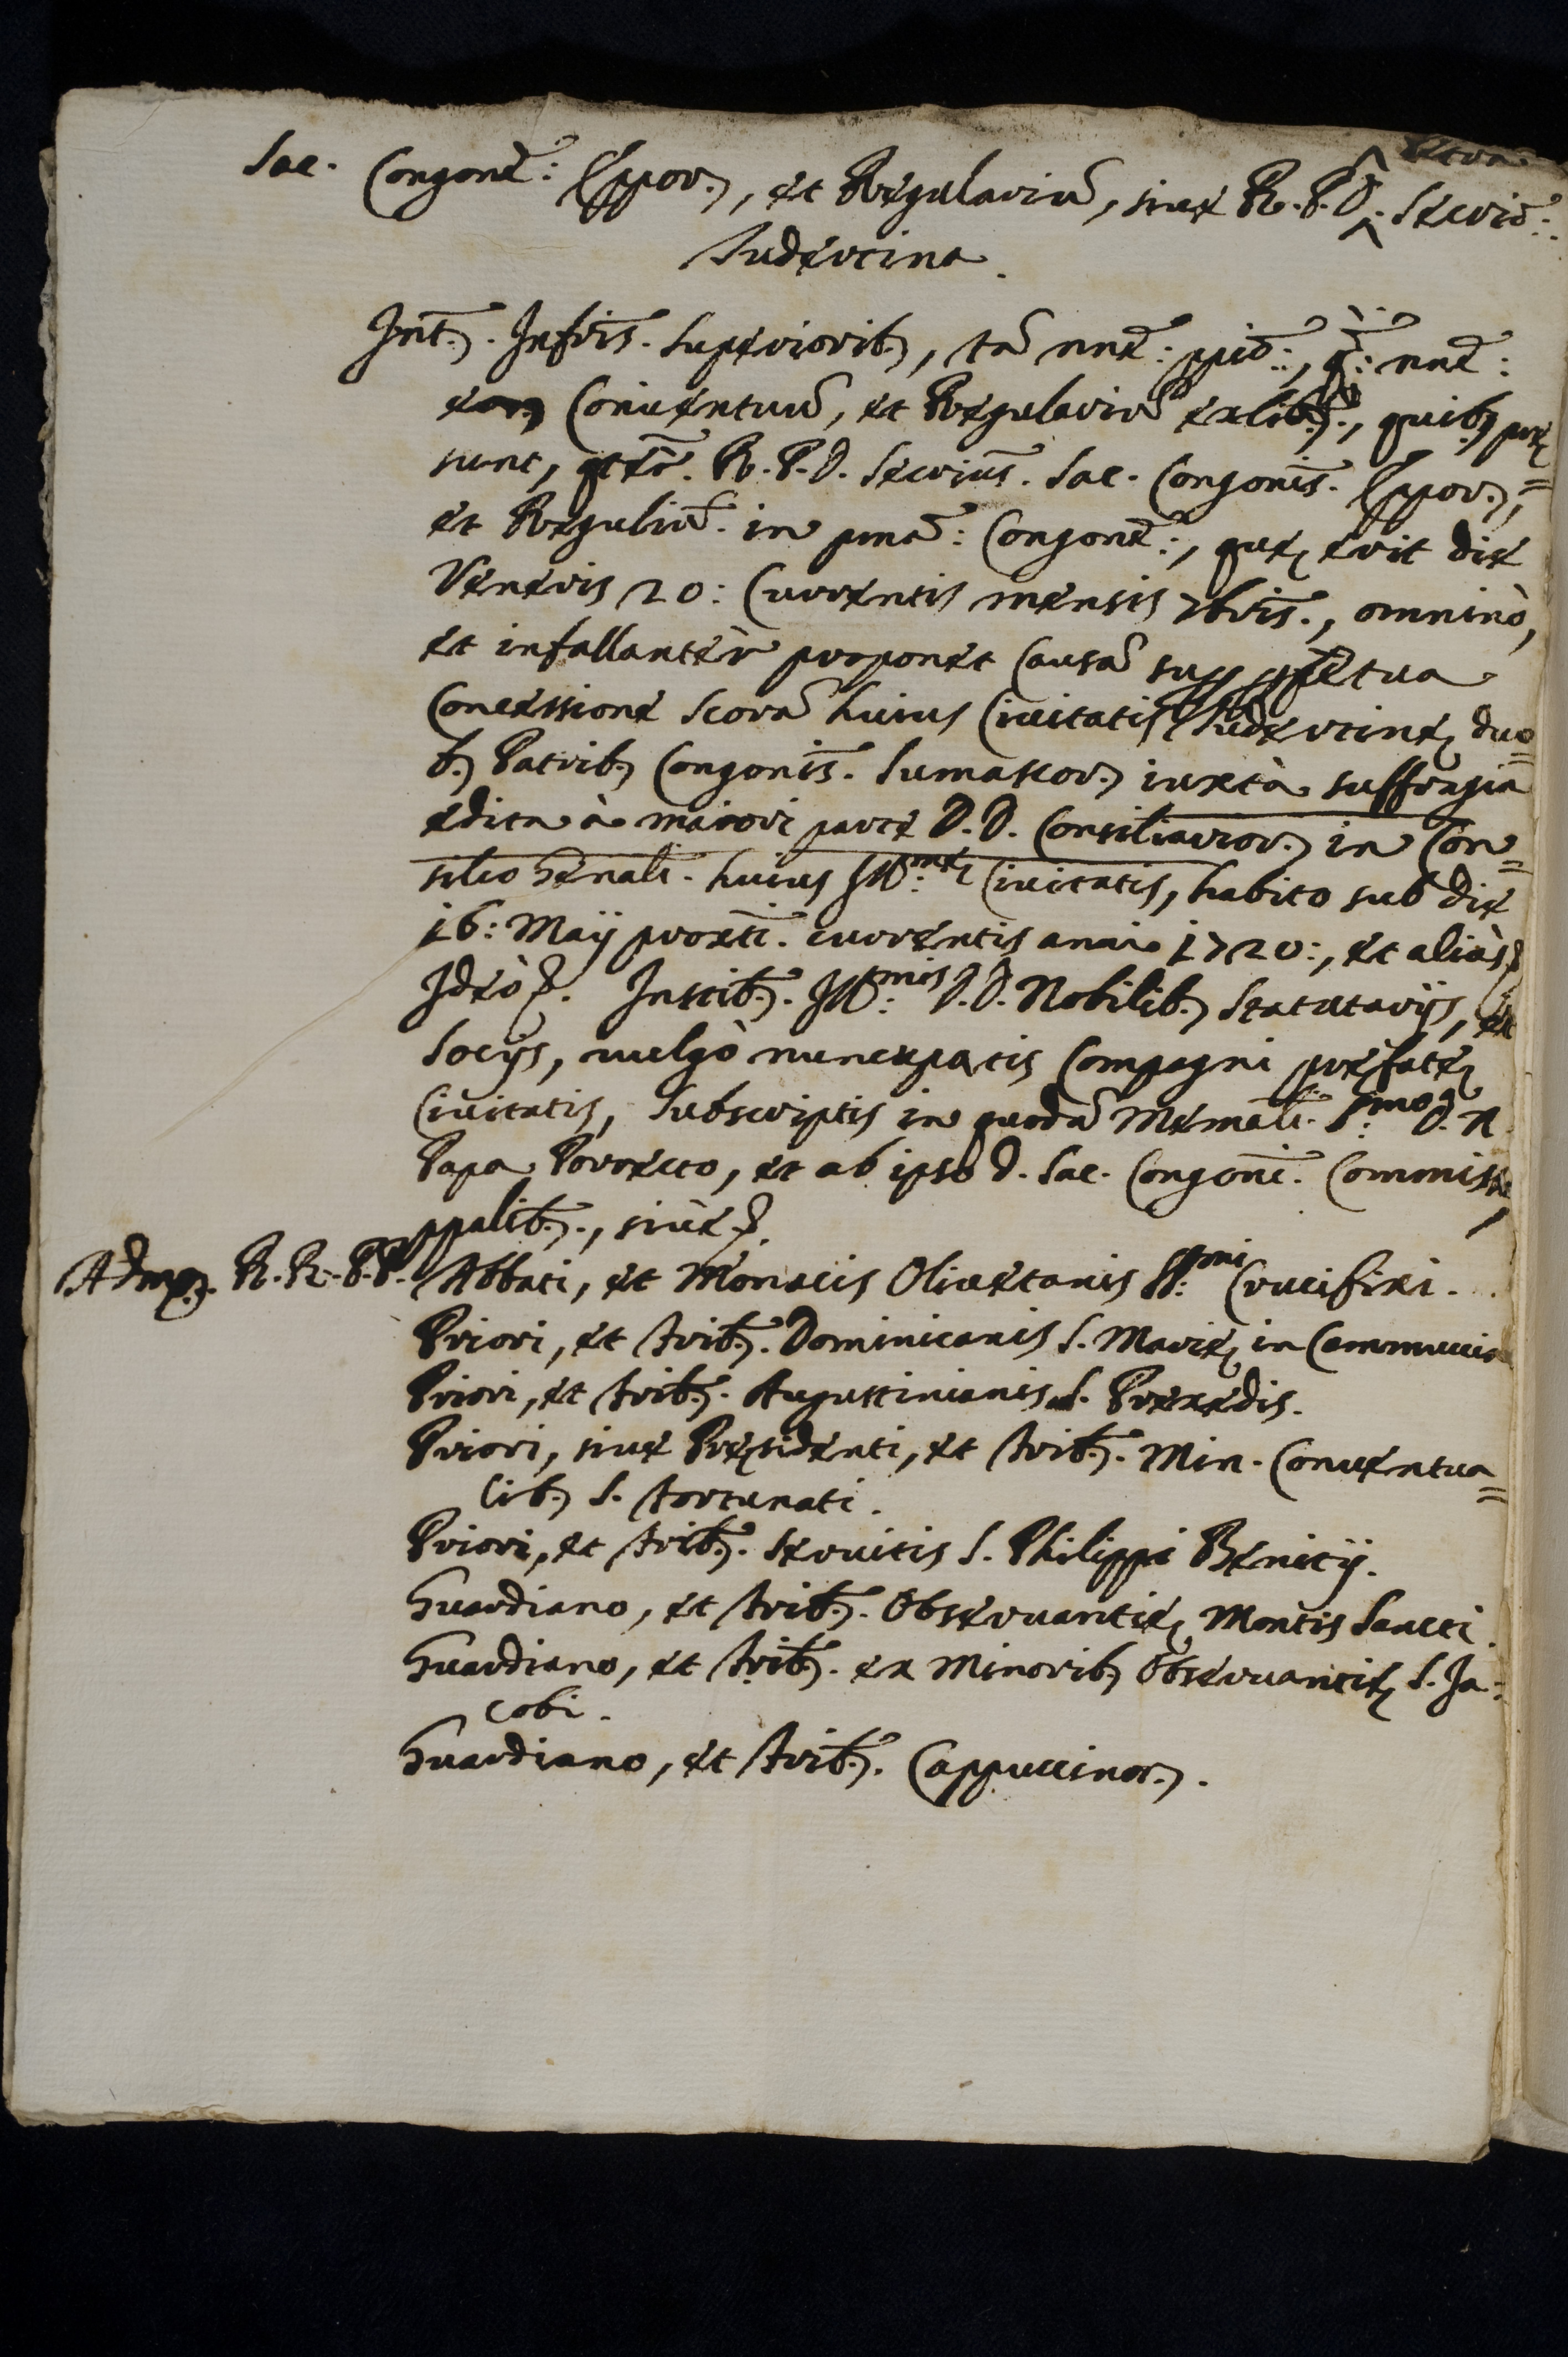 Sac. Congone: Eppor., et Regulariu, siue R. P. D. Secrio:
Tudertina.
Int. Infris. Superiorib., tā nne: ppio:, q̄: nne:
eor Conuentuū, et Regulariū exlib., quib. præ
sunt, qtr̄. R. P. D. Secrius. Sac. Congonis. Eppor.,=
et Reguliū. in pma: Congone:, quæ erit die
Veneris 20: Currentis mensis 7bris., omninò,
et infallantèr proponet Causā sup ppetua
Concessione Scorā huius Ciuitatis Tudertinæ duo=
b. Patrib. Congonis. Sumascor. iuxtà suffragia
edita à maiori parte D. D. Consiliarior. in Con=
silio Gēnali. huius Illmæ Ciuitatis, habito sub die
16: Maÿ proxti. currentis anni 1720:, et aliàs
Ideò. Instib. Ill:mis D. D. Nobilib. Statutarÿs, et
Socÿs, vulgò nuncupatis Compagni præfatæ
Ciuitatis, Subscriptis in quodā Memali. S:mo D. N.
Papa Porrecto, et ab ipso D. Sac. Congoni. Commisso,
ppalib., siuè.
Admm. R. R. P. P. Abbati, et Monacis Oliuetanis SS:mi Crucifixi.
Priori, et Frib. Dominicanis S. Mariæ in Cammuccia
Priori, et Frib. Augustinianis S. Praxedis.
Priori, siue Præsidenti, et Frib. Min. Conuentua=
lib. S. Fortunati.
Priori, et Frib. Seruitis S. Philippi Benitÿ.
Guardiano, et Frib. Obseruantiæ Montis Sancti.
Guardiano, et Frib. ex Minorib. Obseruantiæ S. Ja:
cobi.
Guardiano, et Frib. Cappuccinor.